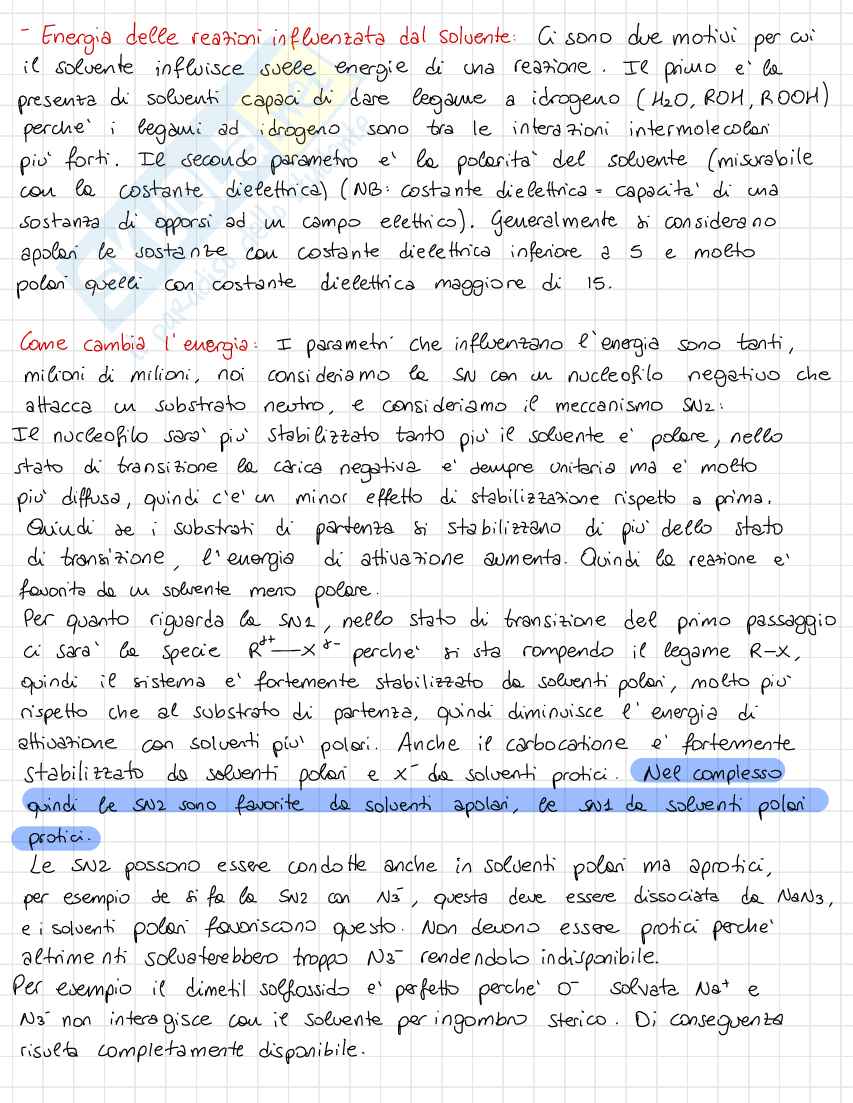 - Energia delle reazioni influenzata dal solvente: Ci sono due motivi per cui
il solvente influisce sulle energie di una reazione. Il primo e' la
presenza di solventi capaci di dare legame a idrogeno (H2O, ROH, ROOH)
perche' i legami ad idrogeno sono tra le interazioni intermolecolari
piu' forti. Il secondo parametro e' la polarita' del solvente (misurabile
con la costante dielettrica) (NB: costante dielettrica = capacita' di una
sostanza di opporsi ad un campo elettrico). Generalmente si considerano
apolari le sostanze con costante dielettrica inferiore a 5 e molto
polari quelli con costante dielettrica maggiore di 15.
Come cambia l'energia: I parametri che influenzano l'energia sono tanti,
milioni di milioni, noi consideriamo la SN con un nucleofilo negativo che
attacca un substrato neutro, e consideriamo il meccanismo SN2:
Il nucleofilo sara' piu' stabilizzato tanto piu' il solvente e' polare, nello
stato di transizione la carica negativa e' sempre unitaria ma e' molto
piu' diffusa, quindi c'e' un minor effetto di stabilizzazione rispetto a prima.
Quindi se i substrati di partenza si stabilizzano di piu' dello stato
di transizione, l'energia di attivazione aumenta. Quindi la reazione e'
favorita da un solvente meno polare.
Per quanto riguarda la SN1, nello stato di transizione del primo passaggio
ci sara' la specie R^δ+—X^δ- perche' si sta rompendo il legame R-X,
quindi il sistema e' fortemente stabilizzato da solventi polari, molto piu'
rispetto che al substrato di partenza, quindi diminuisce l'energia di
attivazione con solventi piu' polari. Anche il carbocatione e' fortemente
stabilizzato da solventi polari e X⁻ da solventi protici. Nel complesso
quindi le SN2 sono favorite da solventi apolari, le SN1 da solventi polari
protici.
Le SN2 possono essere condotte anche in solventi polari ma aprotici,
per esempio se si fa la SN2 con N3⁻, questa deve essere dissociata da NaN3,
e i solventi polari favoriscono questo. Non devono essere protici perche'
altrimenti solvaterebbero troppo N3⁻ rendendolo indisponibile.
Per esempio il dimetil solfossido e' perfetto perche' O⁻ solvata Na⁺ e
N3⁻ non interagisce con il solvente per ingombro sterico. Di conseguenza
risulta completamente disponibile.